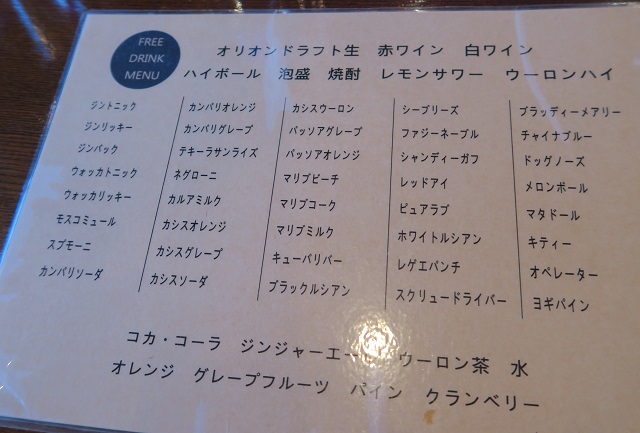 FREE
DRINK
MENU
オリオンドラフト生 赤ワイン 白ワイン
ハイボール 泡盛 焼酎 レモンサワー ウーロンハイ
ジントニック
ジンリッキー
ジンバック
ウォッカトニック
ウォッカリッキー
モスコミュール
スプモーニ
カンパリソーダ
カンパリオレンジ
カンパリグレープ
テキーラサンライズ
ネグローニ
カルアミルク
カシスオレンジ
カシスグレープ
カシスソーダ
カシスウーロン
パッソアグレープ
パッソアオレンジ
マリブピーチ
マリブコーク
マリブミルク
キューバリバー
ブラックルシアン
シーブリーズ
ファジーネーブル
シャンディーガフ
レッドアイ
ピュアラブ
ホワイトルシアン
レゲエパンチ
スクリュードライバー
ブラッディーメアリー
チャイナブルー
ドッグノーズ
メロンボール
マタドール
キティー
オペレーター
ヨギパイン
コカ・コーラ ジンジャーエール ウーロン茶 水
オレンジ グレープフルーツ パイン クランベリー